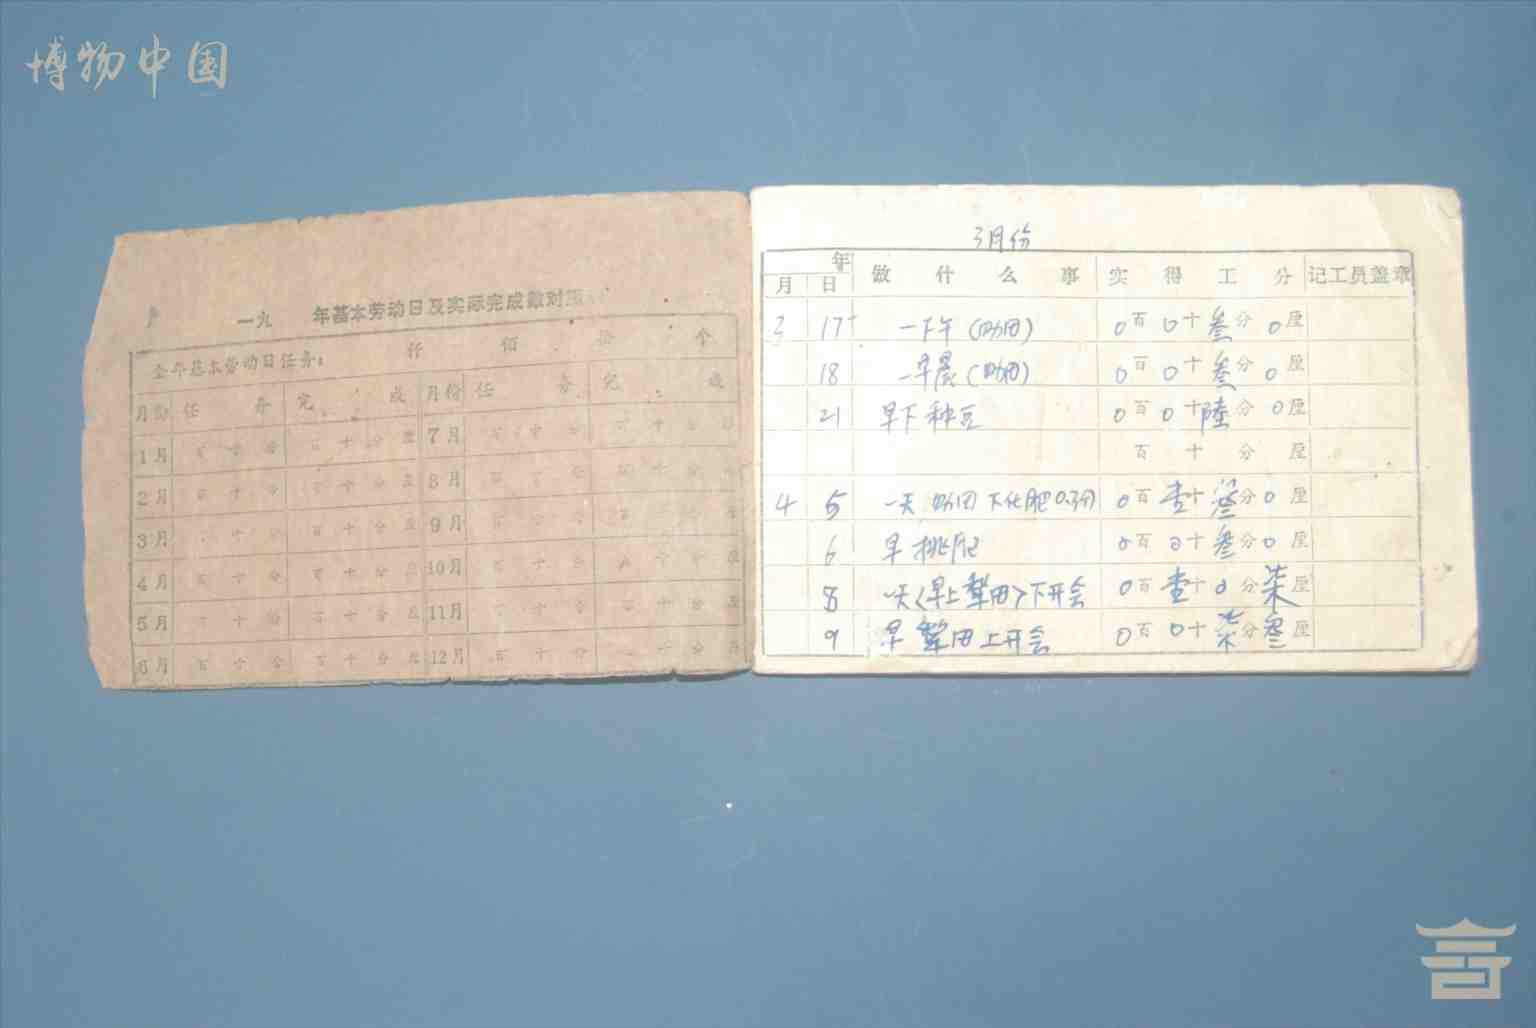 博物中国
一九 年基本劳动日及实际完成数对
全年基本劳动日任务： 仟 佰 拾 个
月份 任务 完成 月份 任务 完成
1月 百十分 百十分厘 7月 百十分 百十分厘
2月 百十分 百十分厘 8月 百十分 百十分厘
3月 百十分 百十分厘 9月 百十分 百十分厘
4月 百十分 百十分厘 10月 百十分 百十分厘
5月 百十分 百十分厘 11月 百十分 百十分厘
6月 百十分 百十分厘 12月 百十分 百十分厘
3月份
年
月 日 做什么事 实得工分 记工员盖章
3 17 一下午 0百0十叁分0厘
18 一早晨 0百0十叁分0厘
21 早下种豆 0百0十陸分0厘
百十分厘
4 5 一天 下化肥0.3分 0百壹十叁分0厘
6 早挑肥 0百0十叁分0厘
8 一天<早上犁田>下开会 0百壹十0分柒厘
9 早犁田上开会 0百0十柒分叁厘